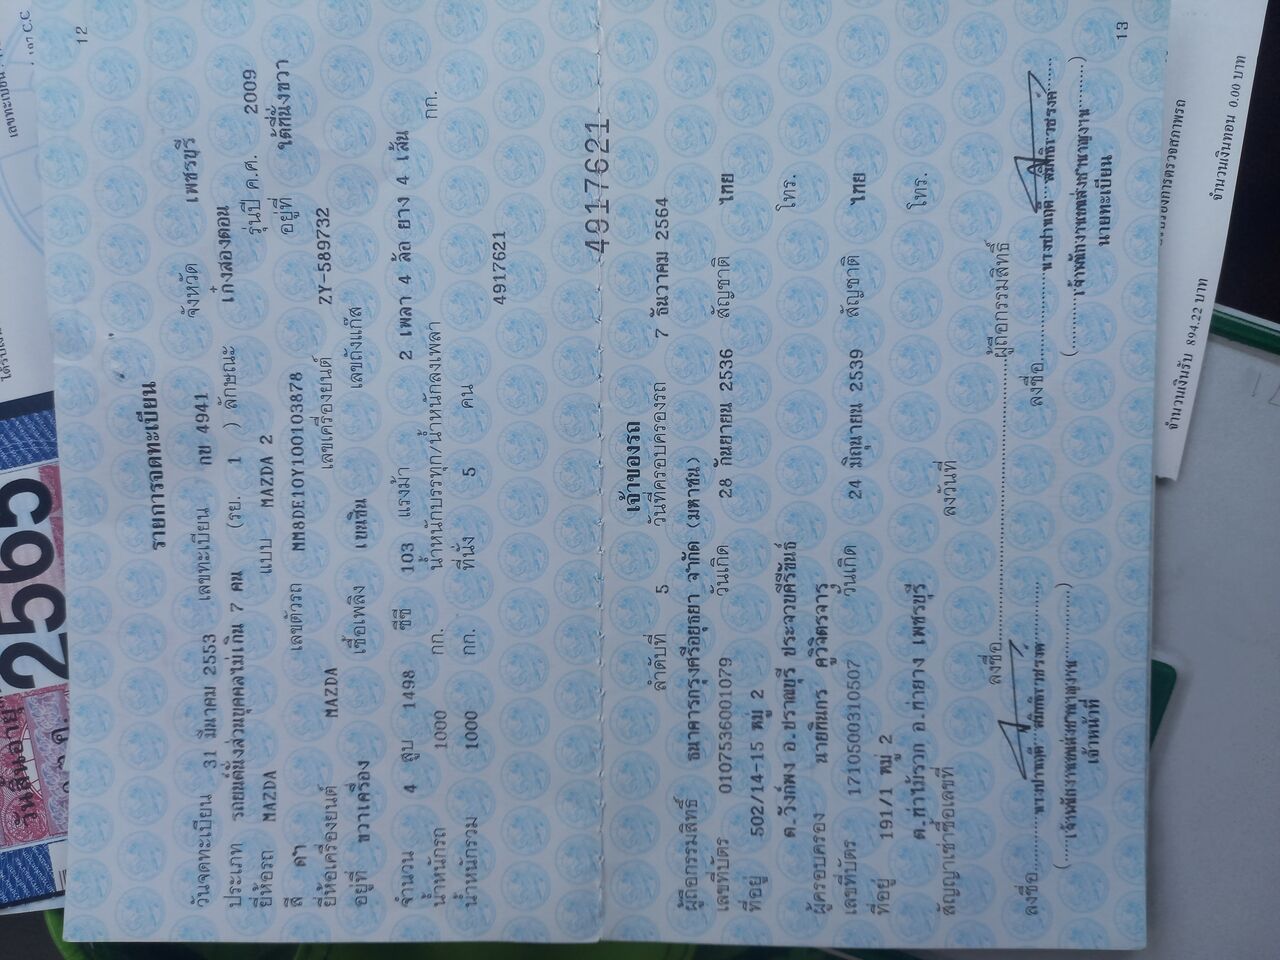 12
รายการจดทะเบียน
วันจดทะเบียน 31 มีนาคม 2553 เลขทะเบียน กข 4941 จังหวัด เพชรบุรี
ประเภท รถยนต์นั่งส่วนบุคคลไม่เกิน 7 คน (รย. 1 ) ลักษณะ เก๋งสองตอน
ยี่ห้อรถ MAZDA แบบ MAZDA 2 รุ่นปี ค.ศ. 2009
สี ดำ เลขตัวรถ MM8DE10Y100103878 อยู่ที่ ใต้ที่นั่งขวา
ยี่ห้อเครื่องยนต์ MAZDA เลขเครื่องยนต์ ZY-589732
อยู่ที่ ขวาเครื่อง เชื้อเพลิง เบนซิน เลขถังแก๊ส
จำนวน 4 สูบ 1498 ซีซี 103 แรงม้า 2 เพลา 4 ล้อ ยาง 4 เส้น
น้ำหนักรถ 1000 กก. น้ำหนักบรรทุก/น้ำหนักลงเพลา กก.
น้ำหนักรวม 1000 กก. ที่นั่ง 5 คน
4917621
4917621
เจ้าของรถ
ลำดับที่ 5 วันที่ครอบครองรถ 7 ธันวาคม 2564
ผู้ถือกรรมสิทธิ์ ธนาคารกรุงศรีอยุธยา จำกัด (มหาชน)
เลขที่บัตร 0107536001079 วันเกิด 28 กันยายน 2536 สัญชาติ ไทย
ที่อยู่ 502/14-15 หมู่ 2
ต.วังก์พง อ.ปราณบุรี ประจวบคีรีขันธ์ โทร.
ผู้ครอบครอง นายทินกร
เลขที่บัตร 1710500310507 วันเกิด 24 มิถุนายน 2539 สัญชาติ ไทย
ที่อยู่ 191/1 หมู่ 2
ต.ท่าไม้รวก อ.ท่ายาง เพชรบุรี โทร.
สัญญาเช่าซื้อเลขที่ ลงวันที่
ลงชื่อ ผู้ถือกรรมสิทธิ์
ลงชื่อ ลงชื่อ
เจ้าหน้าที่ นายทะเบียน
13
2565
วันสิ้นอายุ
จำนวนเงินรับ 894.22 บาท จำนวนเงินทอน 0.00 บาท